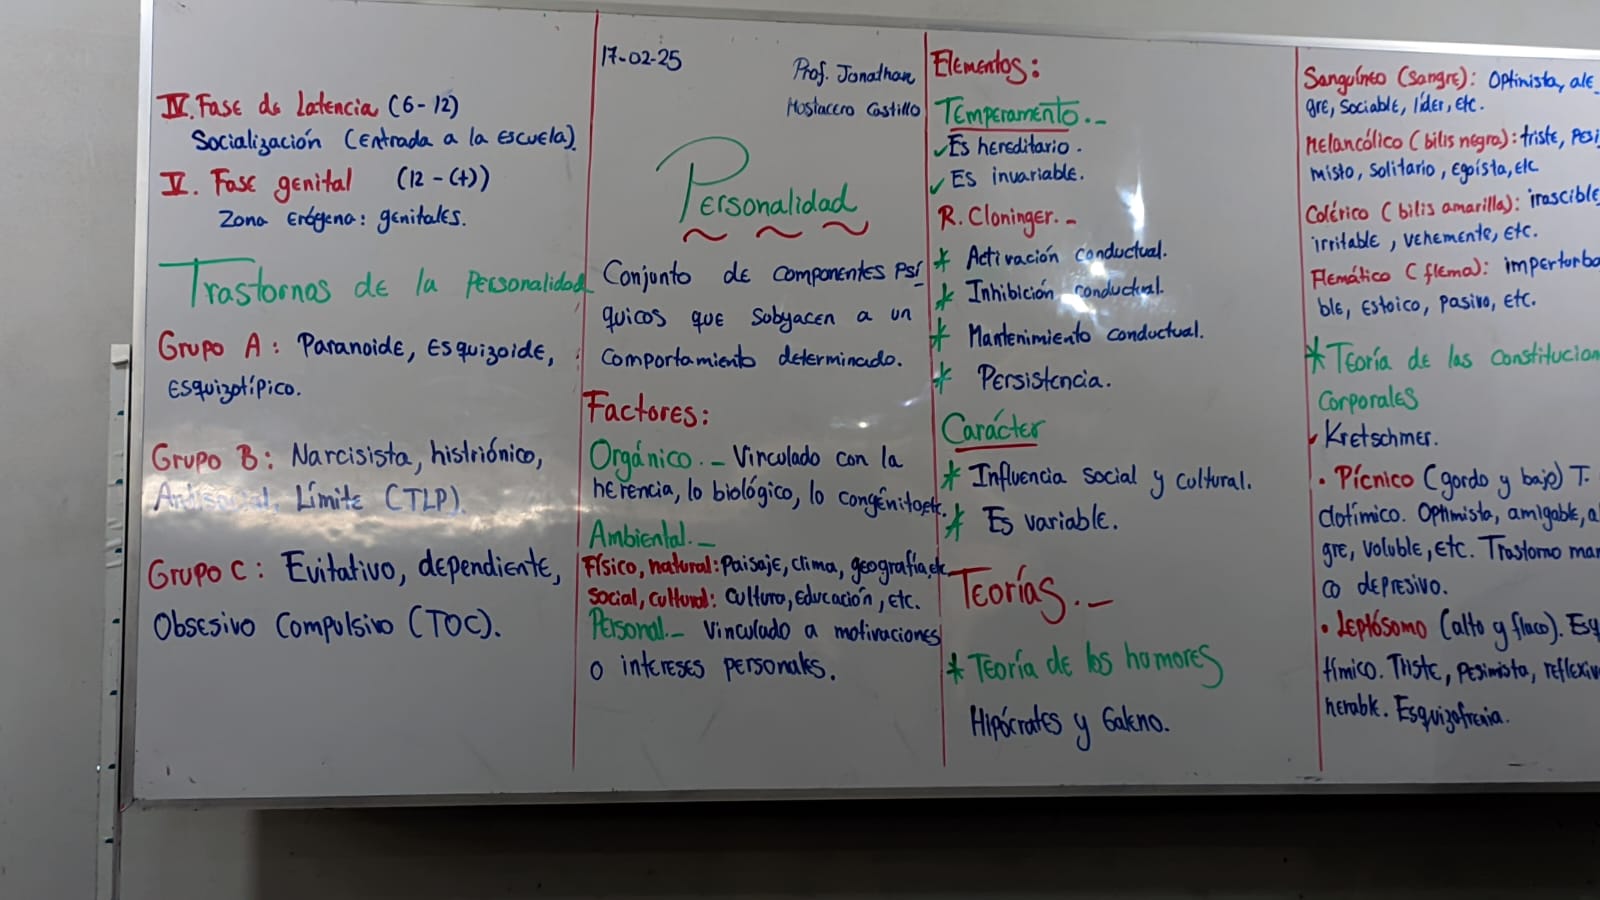 IV. Fase de Latencia (6-12)
Socialización (Entrada a la escuela).
V. Fase genital (12-(+))
Zona Erógena: genitales.
Trastornos de la Personalidad
Grupo A: Paranoide, Esquizoide,
Esquizotípico.
Grupo B: Narcisista, histriónico,
Antisocial, Límite (TLP).
Grupo C: Evitativo, dependiente,
Obsesivo Compulsivo (TOC).
17-02-25
Prof. Jonathan
Mostacero Castillo
Personalidad
Conjunto de componentes psí
quicos que subyacen a un
comportamiento determinado.
Factores:
Orgánico._ Vinculado con la
herencia, lo biológico, lo congénito, etc.
Ambiental._
Físico, natural: Paisaje, clima, geografía, etc
Social, cultural: Cultura, Educación, etc.
Personal._ Vinculado a motivaciones
o intereses personales.
Elementos:
Temperamento._
✓ Es hereditario.
✓ Es invariable.
R. Cloninger._
* Activación conductual.
* Inhibición conductual.
* Mantenimiento conductual.
* Persistencia.
Carácter
* Influencia social y cultural.
* Es variable.
Teorías._
* Teoría de los humores
Hipócrates y Galeno.
Sanguíneo (sangre): Optimista, ale
gre, sociable, líder, etc.
Melancólico (bilis negra): triste, pesi
misto, solitario, egoísta, etc
Colérico (bilis amarilla): irascible,
irritable, vehemente, etc.
Flemático (flema): imperturba
ble, estoico, pasivo, etc.
* Teoría de las constitucion
Corporales
✓ Kretschmer.
• Pícnico (gordo y bajo) T.
clotímico. Optimista, amigable, a
gre, voluble, etc. Trastorno man
co depresivo.
• Leptósomo (alto y flaco). Esq
tímico. Triste, pesimista, reflexiv
nerable. Esquizofrenia.